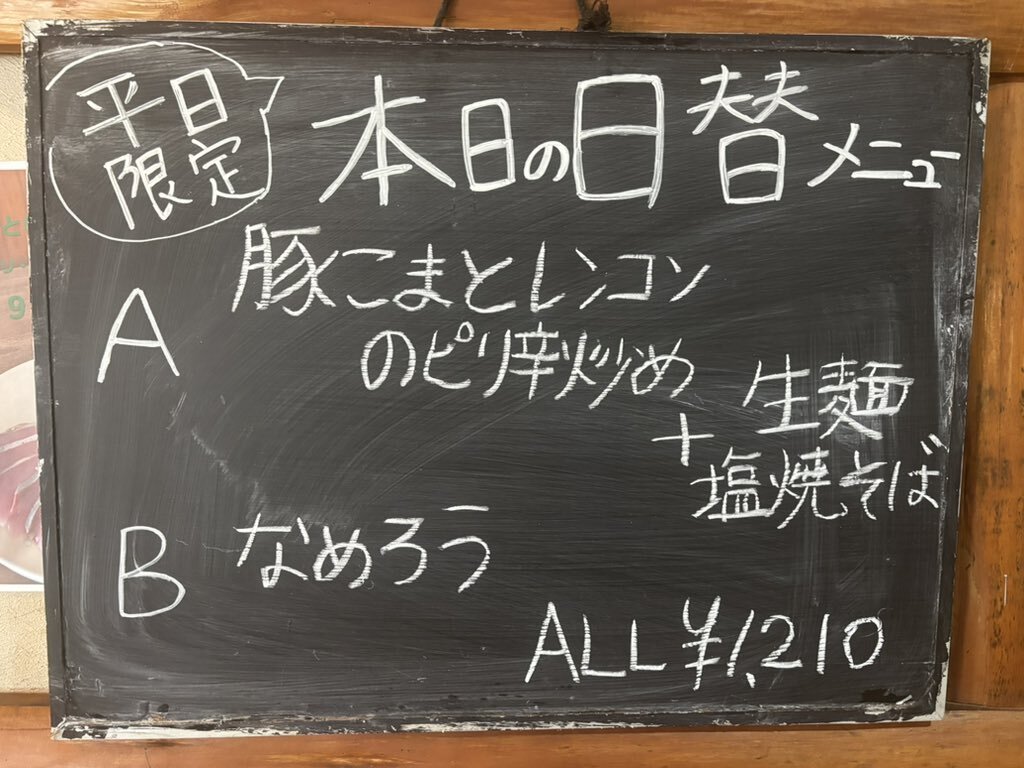 平日
限定
本日の日替メニュー
A 豚こまとレンコン
のピリ辛炒め
+ 生麺
塩焼そば
B なめろう
ALL ¥1,210
と
9